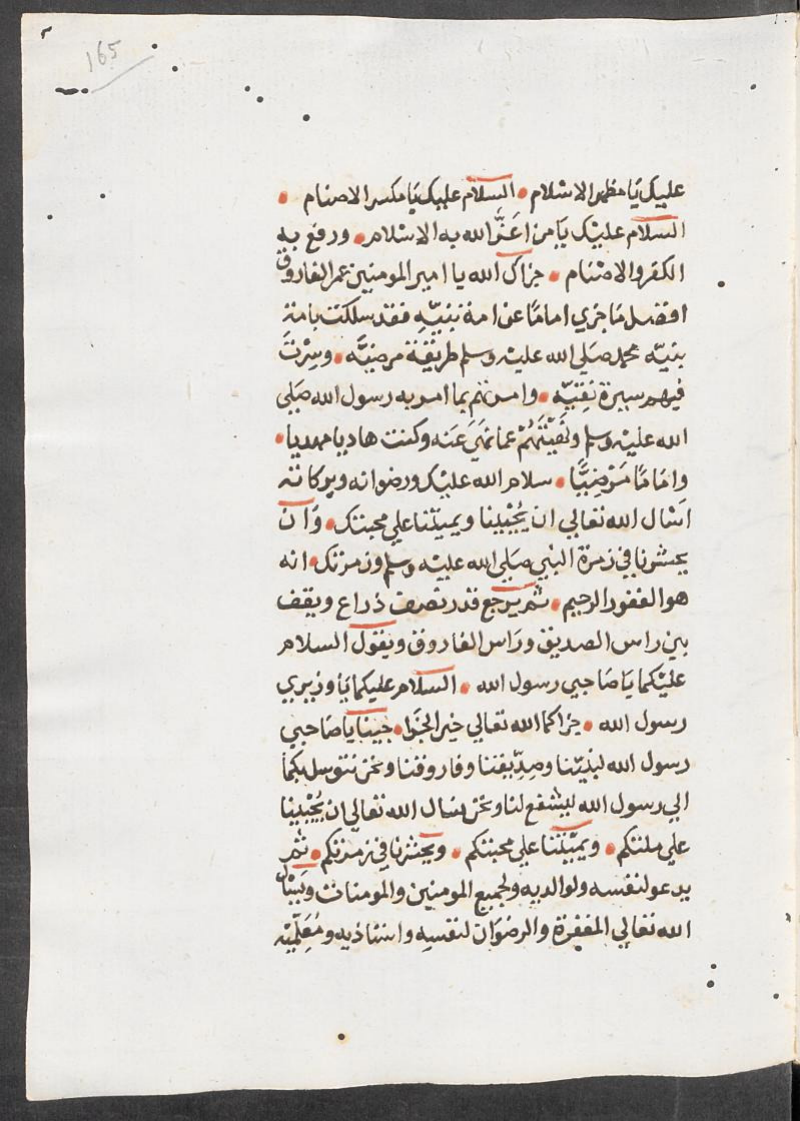 165
عليك يا مظهر الاسلام • السلام عليك يا مكسر الاصنام •
السلام عليك يا من اعَزَّ الله به الاسلام • ورفع به
الكفر والاصنام • جزاك الله يا امير المومنين عمر الفاروق
افضل مَا جزي امامًا عن امة نبيّه فقد سلكت بامة
نبيّه محمد صَلي الله عليه وسلم طريقة مرضيَّه • وسِرْتَ
فيهم سيرة نقيّه • وامرتهم بما امر به رسول الله صَلي
الله عليه وسلم ونَهَيْتَهُمْ عما نَهَيَ عَنه وكنت هاديا مهديا •
وامَامًا مَرْضِيًّا • سلام الله عليك ورضوانه وبركاته
اسَال الله تعالي ان يُحْيينا ويميتنا علي محبتك • وَان
يحشرنا في زمرة النبي صَلي الله عليه وسلم وزمرتك • انه
هو الغفور الرحيم • ثم يرجع قدر نصف ذراع ويقف
بين راس الصديق ورَاس الفاروق ويقول السلام
عليْكما يَا صَاحبي رسول الله • السَلام عليكما يَا وزيري
رسول الله • جزاكما الله تعالي خير الجَزا • جينا يا صَاحبي
رسول الله لنبيّنا وصِدّيقنا وفاروقنا ونحن نتوسل بكما
الي رسول الله ليشفع لنا ونحن نسَال الله تعالي ان يُحْيينا
علي ملتكم • ويميْتَنا علي محبتكم • ويحشرنا في زمرتكم • ثم
يدعو لنفسه ولوالديه ولجميع المومنين والمومنات ويَسْال
الله تعالي المغفرة والرضوَان لنفسِه واستاذيه ومُعلِّميْه